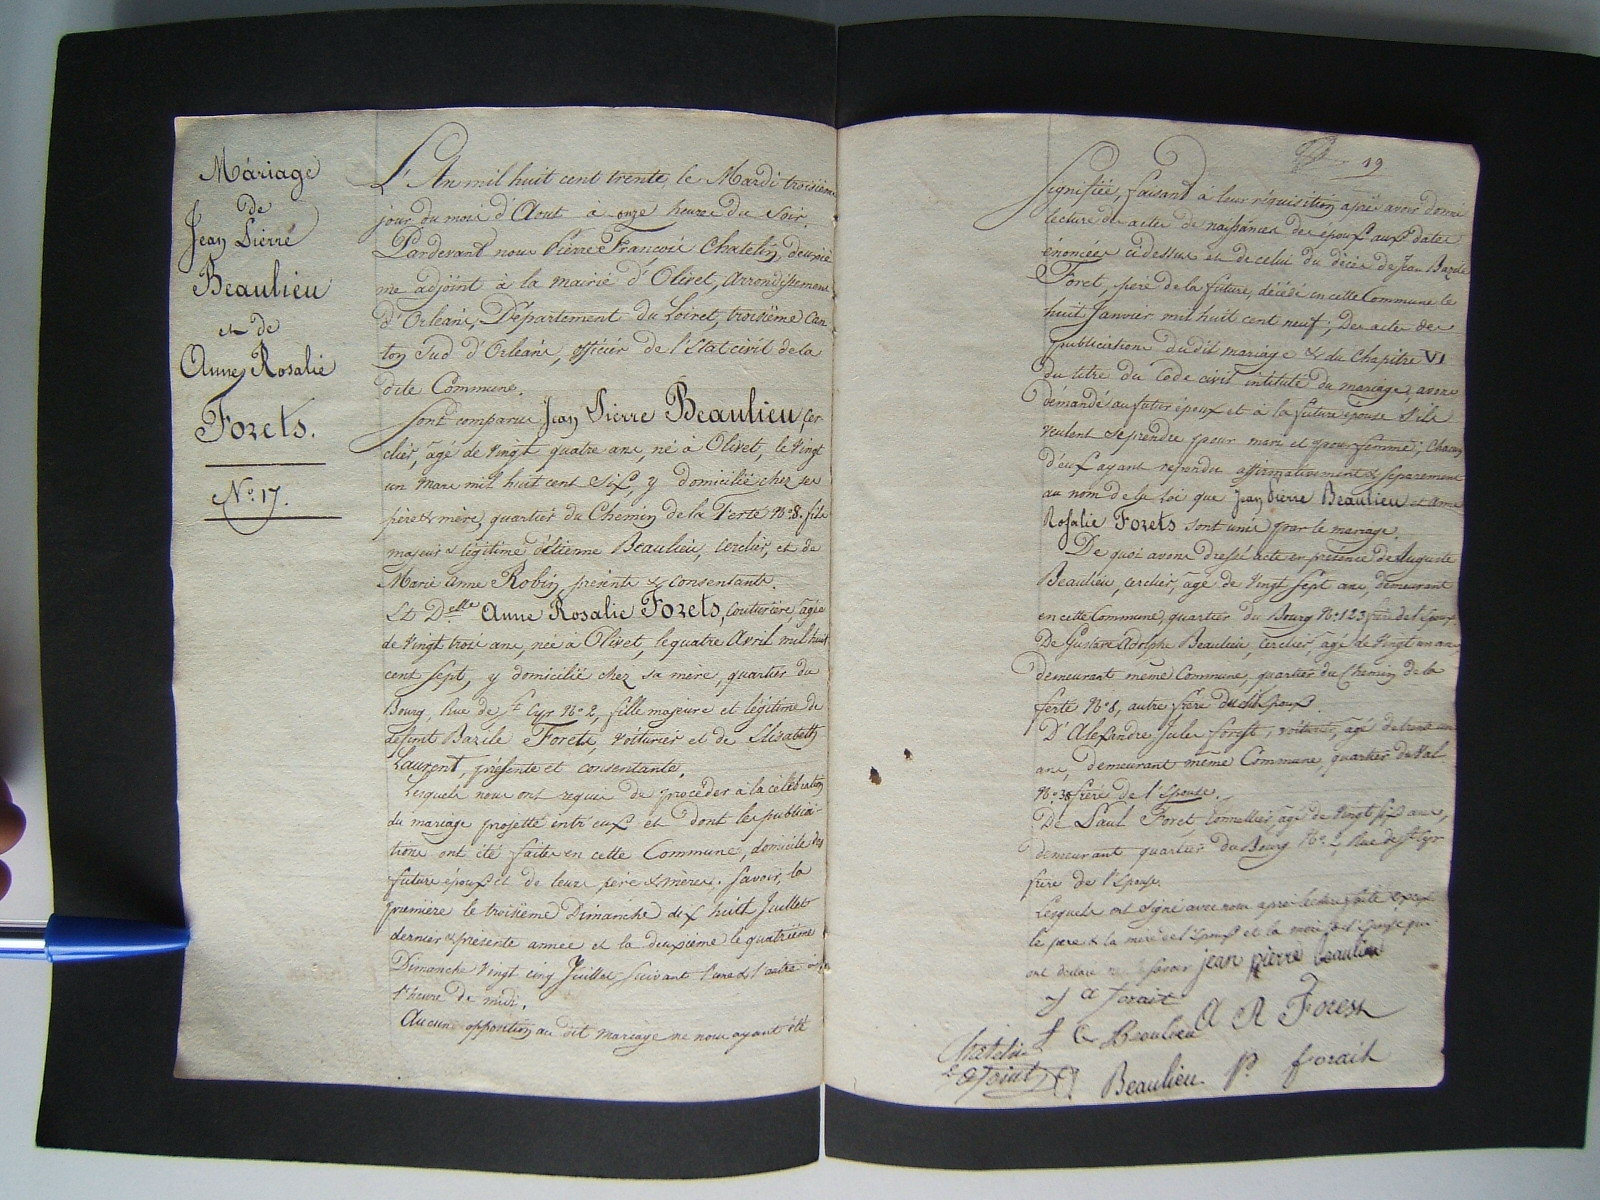 Mariage
de
Jean Pierre
Beaulieu
et de
Anne Rosalie
Forets.
No. 17.
L'An mil huit cent trente, le Mardi troisième
jour du mois d'Aout à onze heures du Soir
Pardevant nous Pierre François Chatelin, deuxiè
me adjoint à la mairie d'Olivet, arrondissement
d'Orleans, Département du Loiret, troisième Can
ton Sud d'Orleans, officier de l'Etat civil de la
dite Commune.
Sont comparus Jean Pierre Beaulieu, cer
clier, agé de vingt quatre ans, né à Olivet, le vingt
un mars mil huit cent six, y domicilié chez ses
père & mère, quartier du Chemin de la Ferté No 8. fils
majeur & légitime d'étienne Beaulieu, cerclier, et de
Marie Anne Robin présents & consentants.
Et Delle Anne Rosalie Forets, Couturière, agée
de vingt trois ans, née à Olivet, le quatre Avril mil huit
cent sept, y domicilié chez sa mère, quartier du
Bourg, Rue de St Cyr No 2, fille majeure et légitime de
defunt Bazile Forets, voiturier et de Elisabeth
Laurent, présente et consentante.
Lesquels nous ont requis de procéder à la célébration
du mariage projetté entr'eux et dont les publica-
tions ont été faites en cette Commune, domicile des
futurs époux et de leurs père & mères. Savoir, la
première le troisième Dimanche dix huit Juillet
dernier présente année et la deuxième le quatrième
Dimanche vingt cinq Juillet suivant l'une & l'autre à
l'heure de midi.
Aucune opposition au dit mariage ne nous ayant été
19
signifiée, faisant à leur réquisition après avoir donné
lecture des actes de naissances des époux aux dates
énoncées ci dessus et de celui du décès de Jean Bazile
Foret, père de la future, décédé en cette Commune le
huit Janvier mil huit cent neuf; Des actes des
publications du dit mariage & du chapitre VI
du titre du Code civil intitulé du mariage, avons
démandé au futur époux et à la future épouse s'ils
veulent se prendre pour mari et pour femme; Chacun
d'eux ayant repondu affirmativement & séparement
au nom de la loi que Jean Pierre Beaulieu et Anne
Rosalie Forets sont unis par le mariage.
De quoi avons dressé acte en présence de Auguste
Beaulieu, cerclier, agé de vingt sept ans, demeurant
en cette Commune, quartier du Bourg No 123 frère de l'époux
De Gustave Adolphe Beaulieu, cerclier, agé de vingt un ans
demeurant même Commune, quartier du Chemin de la
ferté No 8, autre frère de l'époux.
D'Alexandre Jules Forest, voiturier, agé de trente un
ans, demeurant même Commune quartier du Val
No 38 frère de l'Epouse.
De Paul Foret, tonnellier, agé de vingt six ans,
demeurant quartier du Bourg No 2, Rue de St Cyr
frère de l'Epouse.
Lesquels ont signé avec nous après lecture faite excepté
le père & la mère de l'époux et la mère de l'épouse qui
ont déclaré ne savoir jean pierre beaulieu
J A forait
A R Forest
G Beaulieu
Chatelin
adjoint
Beaulieu P. forait